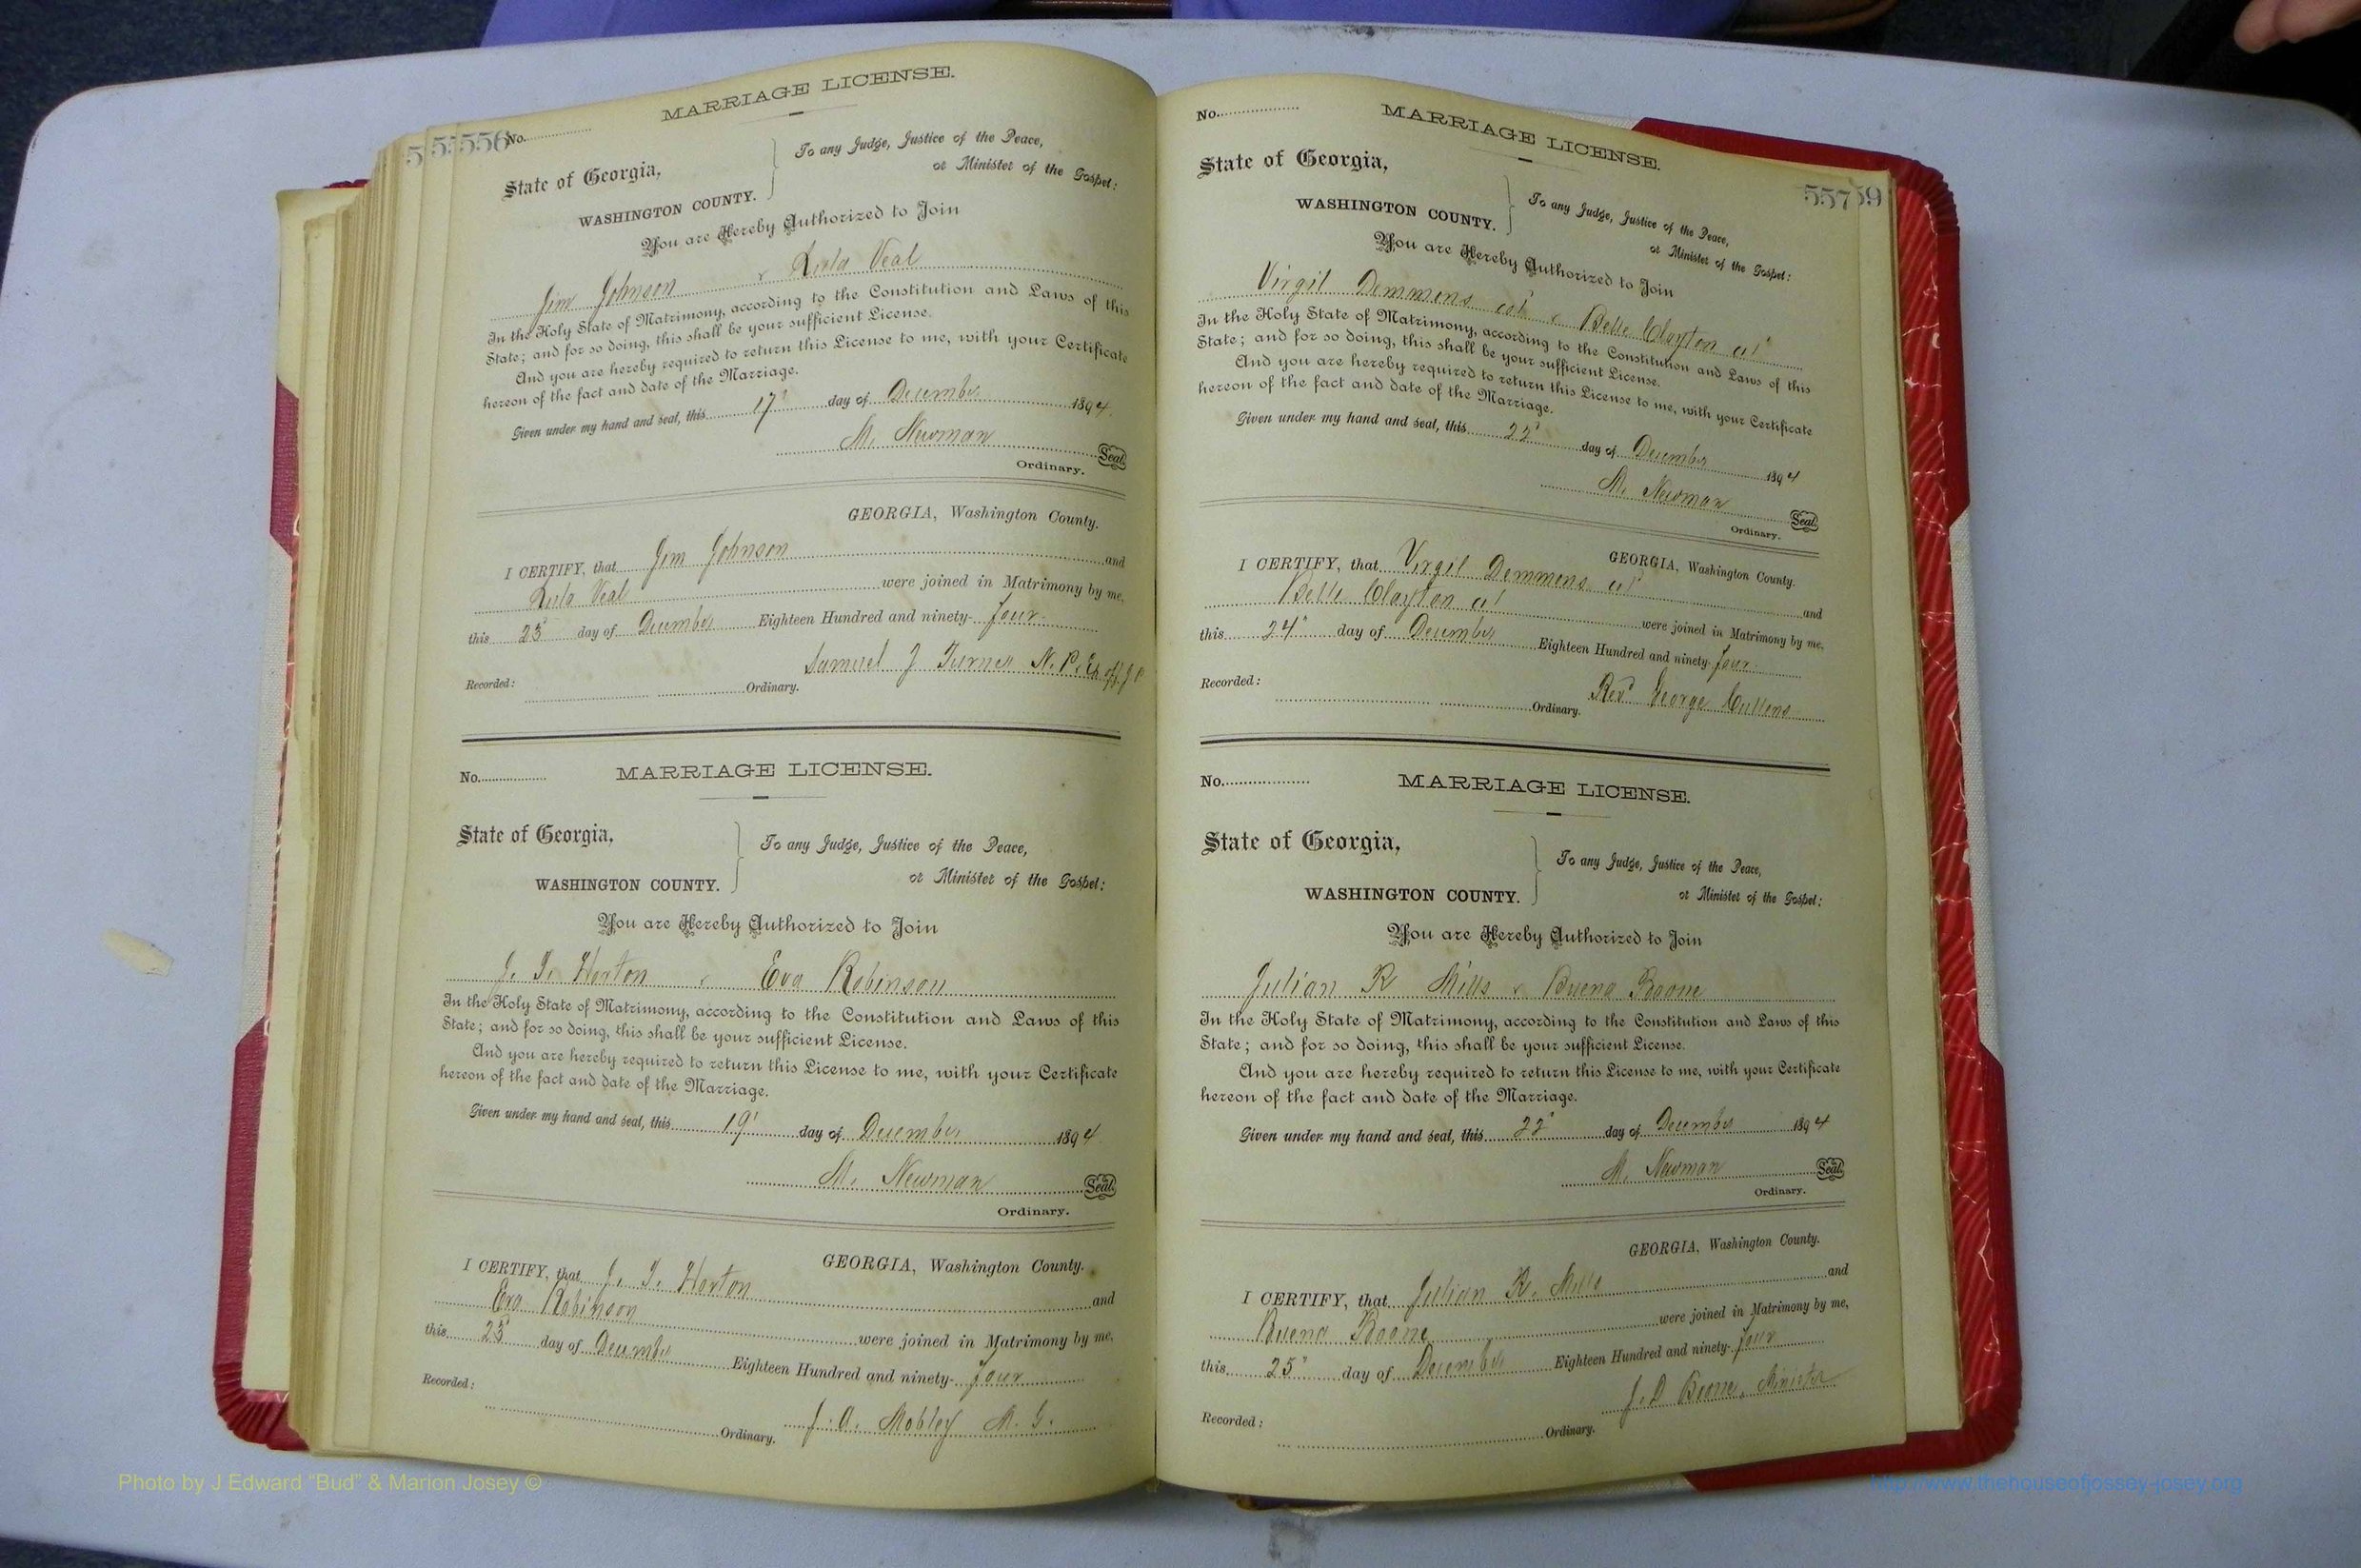 556
No.
MARRIAGE LICENSE.
State of Georgia,
WASHINGTON COUNTY.
To any Judge, Justice of the Peace,
or Minister of the Gospel:
You are Hereby Authorized to Join
Jim Johnson & Lula Veal
In the Holy State of Matrimony, according to the Constitution and Laws of this
State; and for so doing, this shall be your sufficient License.
And you are hereby required to return this License to me, with your Certificate
hereon of the fact and date of the Marriage.
Given under my hand and seal, this 17' day of December 1894.
M. Newman Seal.
Ordinary.
GEORGIA, Washington County.
I CERTIFY, that Jim Johnson and
Lula Veal were joined in Matrimony by me,
this 23 day of December Eighteen Hundred and ninety-four
Samuel J Turner N. P. & Ex off J P
Recorded: Ordinary.
No.
MARRIAGE LICENSE.
State of Georgia,
WASHINGTON COUNTY.
To any Judge, Justice of the Peace,
or Minister of the Gospel:
You are Hereby Authorized to Join
J. T. Horton & Eva Robinson
In the Holy State of Matrimony, according to the Constitution and Laws of this
State; and for so doing, this shall be your sufficient License.
And you are hereby required to return this License to me, with your Certificate
hereon of the fact and date of the Marriage.
Given under my hand and seal, this 19' day of December 1894
M. Newman Seal.
Ordinary.
GEORGIA, Washington County.
I CERTIFY, that J. T. Horton and
Eva Robinson were joined in Matrimony by me,
this day of December Eighteen Hundred and ninety-four
J. A. Mobley M. G.
Recorded: Ordinary.
No.
MARRIAGE LICENSE.
557
59
State of Georgia,
WASHINGTON COUNTY.
To any Judge, Justice of the Peace,
or Minister of the Gospel:
You are Hereby Authorized to Join
Virgil Demmons col & Belle Clayton col
In the Holy State of Matrimony, according to the Constitution and Laws of this
State; and for so doing, this shall be your sufficient License.
And you are hereby required to return this License to me, with your Certificate
hereon of the fact and date of the Marriage.
Given under my hand and seal, this 22' day of December 1894
M. Newman Seal.
Ordinary.
GEORGIA, Washington County.
I CERTIFY, that Virgil Demmons col and
Belle Clayton col were joined in Matrimony by me,
this 24" day of December Eighteen Hundred and ninety-four.
Rev'd George Cullens
Recorded: Ordinary.
No.
MARRIAGE LICENSE.
State of Georgia,
WASHINGTON COUNTY.
To any Judge, Justice of the Peace,
or Minister of the Gospel:
You are Hereby Authorized to Join
Julian R Mills & Buena Boone
In the Holy State of Matrimony, according to the Constitution and Laws of this
State; and for so doing, this shall be your sufficient License.
And you are hereby required to return this License to me, with your Certificate
hereon of the fact and date of the Marriage.
Given under my hand and seal, this 22' day of December 1894
M. Newman Seal.
Ordinary.
GEORGIA, Washington County.
I CERTIFY, that Julian R. Mills and
Buena Boone were joined in Matrimony by me,
this 25" day of December Eighteen Hundred and ninety-four
J. D Boone, Minister
Recorded: Ordinary.
Photo by J Edward "Bud" & Marion Josey ©
http://www.thehouseofjossey-josey.org